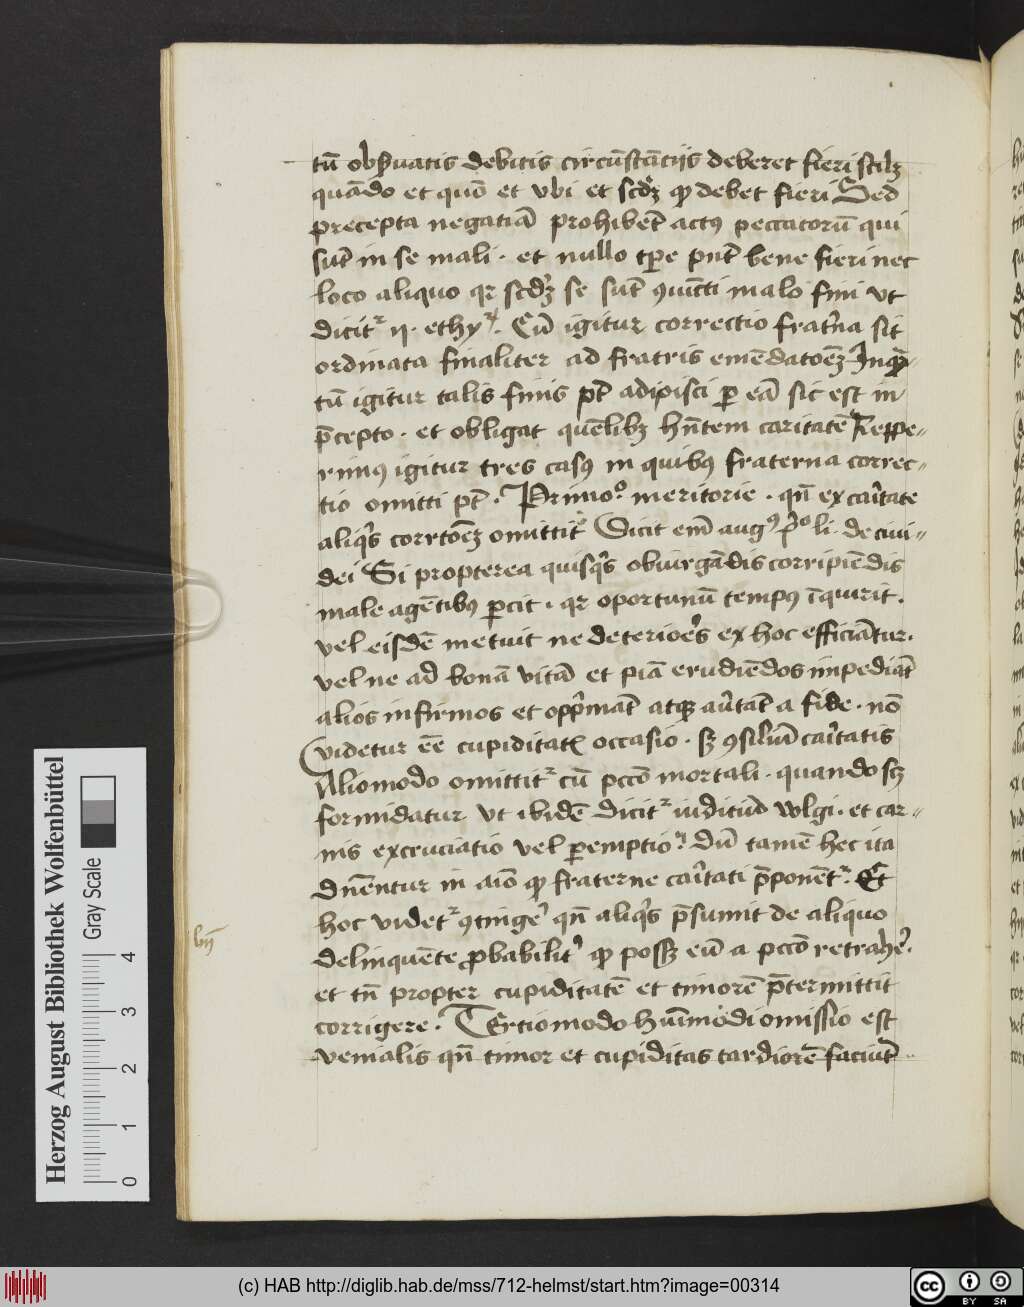 tū obs̄uatis debitis circūstātijs deberet fieri scilꝫ
quādo et quō et vbi et scdꝫ qꝫ debet fieri Sed
precepta negatiā prohibēt actꝰ peccatorū qui
sūt in se mali · et nullo tp̄e pn̄t bene fieri nec
loco aliquo qꝛ scdꝫ se sūt ꝯiūcti malo fini vt
dicitᷣ ij · ethyꝝ · Cū igitur correctio frat̄na sit
ordinata finaliter ad fratris emēdatōeꝫ Inqꝫ-
tū igitur talis finis pt̄ adipisci ꝑ eā sic est in
p̄cepto · et obligat quēlibꝫ hn̄tem caritatē Reppe-
rimꝰ igitur tres casꝰ in quibꝰ fraterna correc-
tio omitti pt̄ · Primoͦ meritorie · qn̄ ex caītate
aliqͥs corrtōeꝫ omittitᷣ Dicit em̄ augꝰ pͥoͦ li · de ciui-
dei Si propterea quisqͥs obiurgādis corripiēdis
male agētibus ꝑcit · qꝛ oportunū tempꝰ īquirit ·
vel eisdē metuit ne deterioēs ex hoc efficiātur ·
vel ne ad bonā vitā et piā erudiēdos impediāt
alios infirmos et opp̄māt atqꝫ aūtāt a fide · nō
videtur eē cupiditatꝭ occasio · sꝫ ꝯsiliū caītatis
Aliomodo omittitᷣ cū pccō mortali · quando scꝫ
formidatur vt ibidē dicitᷣ iuditiū wlgi · et car-
nis excruciatio vel ꝑemptio · dū tamē hec ita
dn̄entur in aīo qꝫ fraterne caītati p̄ponētᷣ · Et
hoc videtᷣ ꝯtingeᷣ qn̄ aliqͥs p̄sumit de aliquo
delinquēte ꝓbabilitᷣ qꝫ possꝫ eū a pccō retraheᷣ ·
et tn̄ propter cupiditatē et timorē p̄termittit
corrigere · Tertiomodo huīmodi omissio est
venialis qn̄ timor et cupiditas tardiorē faciūt
Herzog August Bibliothek Wolfenbüttel
Gray Scale
0 1 2 3 4
(c) HAB http://diglib.hab.de/mss/712-helmst/start.htm?image=00314
cc BY SA